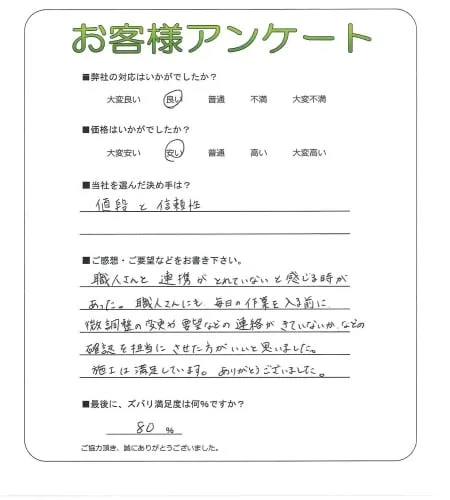 お客様アンケート
■弊社の対応はいかがでしたか？
大変良い 良い 普通 不満 大変不満
■価格はいかがでしたか？
大変安い 安い 普通 高い 大変高い
■当社を選んだ決め手は？
値段と信頼性
■ご感想・ご要望などをお書き下さい。
職人さんと連携がとれていないと感じる時が
あった。職人さんにも毎日の作業を入る前に
微調整の変更や要望などの連絡がきていないか、などの
確認を担当にさせた方がいいと思いました。
施工は満足しています。ありがとうございました。
■最後に、ズバリ満足度は何%ですか？
80 %
ご協力頂き、誠にありがとうございました。